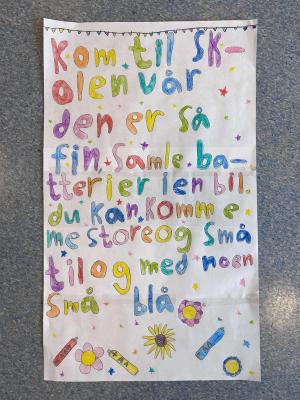 Kom til sk-
olen vår
den er så
fin. Samle ba-
tterier i en bil.
du kan. komme
me store og små
til og med noen
små blå
AAA